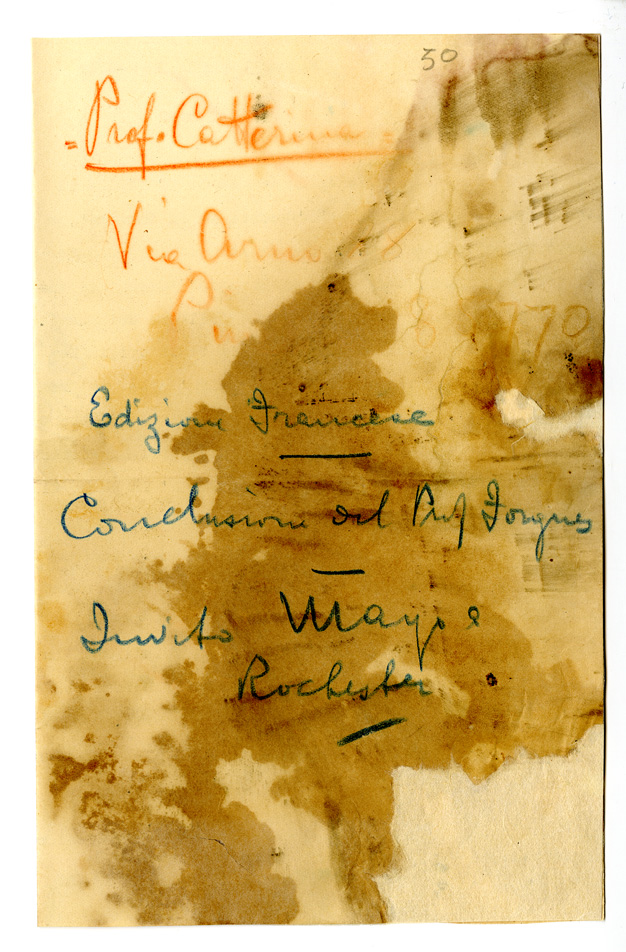 50
= Prof. Catterina =
Via Arno 8
8 770
Edizione Francese
Conclusione del Prof Forgues
Invito Mayo e
Rochester